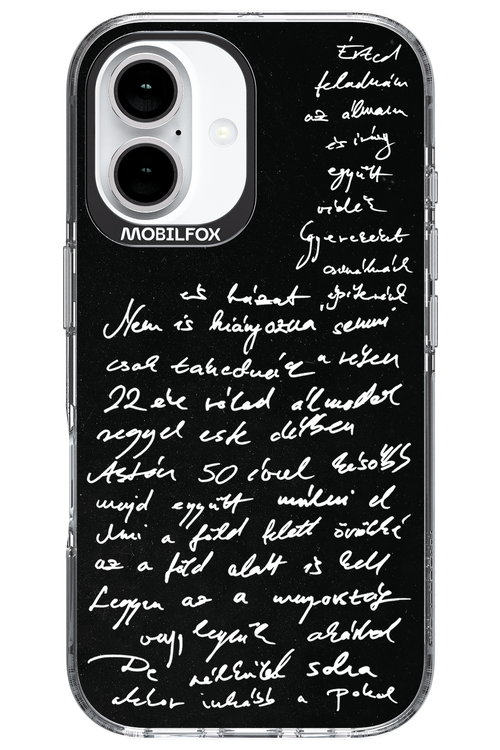 MOBILFOX
Érted
feladnám
az álmaim
és így
együtt
Gyereket
csinálnánk
és házat építenénk
Nem is hiányozna semmi
csak takednék a
22 éve rólad álmodok
reggel este délben
Aztán 50 évvel később
majd együtt múlni el
Ami a föld felett örökké
az a föld alatt is kell
Legyen az a mennyország
vagy legyünk akárhol
De nélküled soha
akkor inkább a Pokol